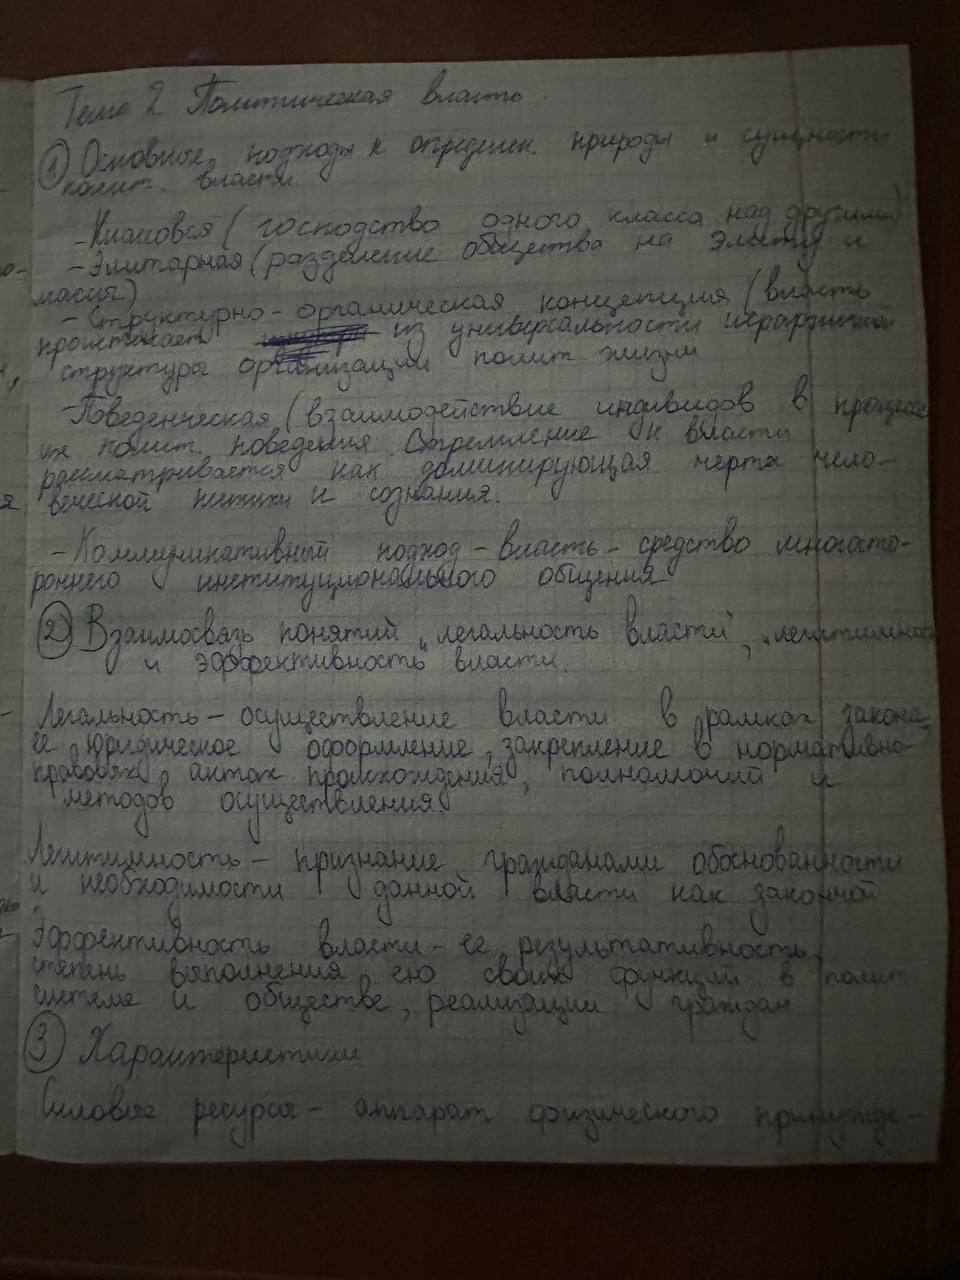 Тема 2 Политическая власть.
① Основные подходы к определен. природы и сущности
полит. власти.
- Классовая (господство одного класса над другими)
- Элитарная (разделение общества на элиту и
массы)
- Структурно-органическая концепция (власть
проистекает из универсальности иерархичной
структуры организации полит жизни
- Поведенческая (взаимодействие индивидов в процессе
их полит. поведения. Стремление к власти
рассматривается как доминирующая черта чело-
веческой психики и сознания.
- Коммуникативный подход - власть - средство многосто-
роннего институционального общения
② Взаимосвязь понятий "легальность власти", "легитимность
и эффективность власти.
Легальность - осуществление власти в рамках закона,
её юридическое оформление, закрепление в нормативно-
правовых актах происхождения, полномочий и
методов осуществления.
Легитимность - признание гражданами обоснованности
и необходимости данной власти как законной
Эффективность власти - ее результативность,
степень выполнения ею своих функций в полит
системе и обществе, реализации граждан
③ Характеристики
Силовые ресурсы - аппарат физического принужде-